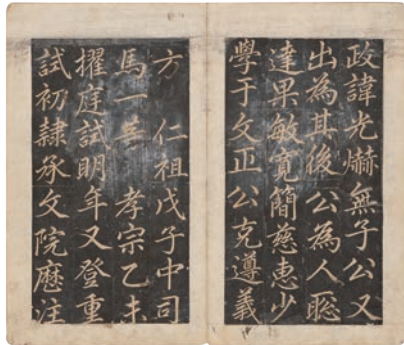 政諱光爀無子公又
出為其後公為人聡
達果敏寬簡慈惠少
學于文正公克遵義
方 仁祖戊子中司
馬一等 孝宗乙未
擢庭試明年又登重
試初隷承文院歷注